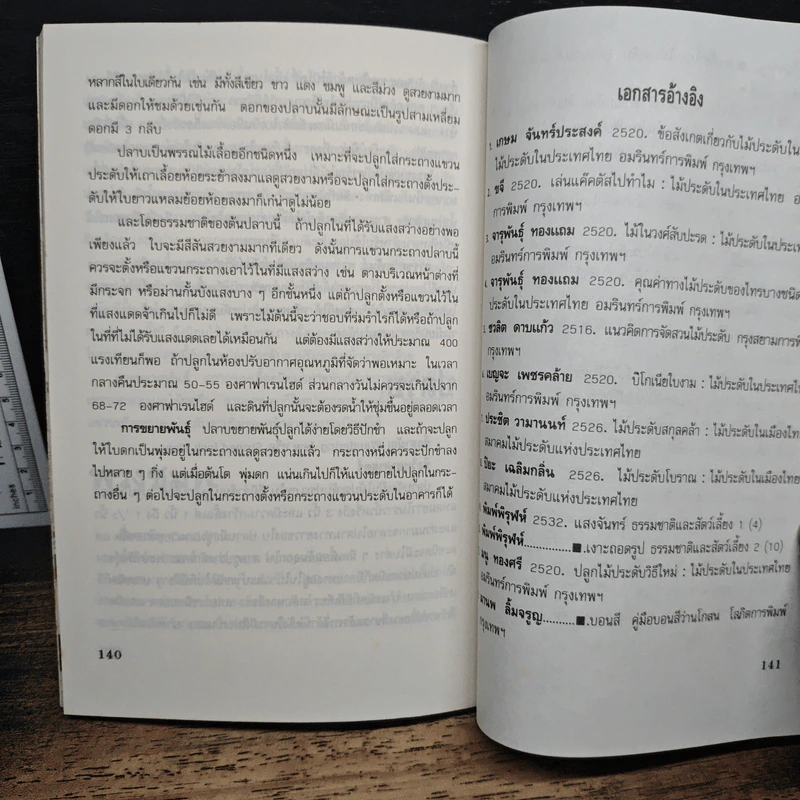 หลากสีในใบเดียวกัน เช่น มีทั้งสีเขียว ขาว แดง ชมพู และสีม่วง ดูสวยงามมาก
และมีดอกให้ชมด้วยเช่นกัน ดอกของปลาบนั้นมีลักษณะเป็นรูปสามเหลี่ยม
ดอกมี 3 กลีบ
ปลาบเป็นพรรณไม้เลื้อยอีกชนิดหนึ่ง เหมาะที่จะปลูกใส่กระถางแขวน
ประดับให้เถาเลื้อยห้อยระย้าลงมาแลดูสวยงามหรือจะปลูกใส่กระถางตั้งประ-
ดับให้ใบยาวแหลมย้อยห้อยลงมาก็เก๋น่าดูไม่น้อย
และโดยธรรมชาติของต้นปลาบนี้ ถ้าปลูกในที่ได้รับแสงสว่างอย่างพอ
เพียงแล้ว ใบจะมีสีสันสวยงามมากทีเดียว ดังนั้นการแขวนกระถางปลาบนี้
ควรจะตั้งหรือแขวนกระถางเอาไว้ในที่มีแสงสว่าง เช่น ตามบริเวณหน้าต่างที่
มีกระจก หรือม่านกั้นบังแสงบาง ๆ อีกชั้นหนึ่ง แต่ถ้าปลูกตั้งหรือแขวนไว้ใน
ที่แสงแดดจ้าเกินไปก็ไม่ดี เพราะไม้ต้นนี้จะว่าชอบที่ร่มรำไรก็ได้หรือถ้าปลูก
ในที่ที่ไม่ได้รับแสงแดดเลยได้เหมือนกัน แต่ต้องมีแสงสว่างให้ประมาณ 400
แรงเทียนก็พอ ถ้าปลูกในห้องปรับอากาศอุณหภูมิที่จัดว่าพอเหมาะ ในเวลา
กลางคืนประมาณ 50-55 องศาฟาเรนไฮต์ ส่วนกลางวันไม่ควรจะเกินไปจาก
68-72 องศาฟาเรนไฮต์ และดินที่ปลูกนั้นจะต้องรดน้ำให้ชุ่มชื้นอยู่ตลอดเวลา
การขยายพันธุ์ ปลาบขยายพันธุ์ปลูกได้ง่ายโดยวิธีปักชำ และถ้าจะปลูก
ให้ใบดกเป็นพุ่มอยู่ในกระถางแลดูสวยงามแล้ว กระถางหนึ่งควรจะปักชำลง
ไปหลาย ๆ กิ่ง แต่เมื่อต้นโต พุ่มดก แน่นเกินไปก็ให้แบ่งขยายไปปลูกในกระ-
ถางอื่น ๆ ต่อไปจะปลูกในกระถางตั้งหรือกระถางแขวนประดับในอาคารก็ได้
140
เอกสารอ้างอิง
1. เกษม จันทร์ประสงค์ 2520. ข้อสังเกตเกี่ยวกับไม้ประดับใน
ไม้ประดับในประเทศไทย อมรินทร์การพิมพ์ กรุงเทพฯ
2. ขจี 2520. เล่นแค๊คตัสไปทำไม : ไม้ประดับในประเทศไทย อ
การพิมพ์ กรุงเทพฯ
3. จารุพันธุ์ ทองแถม 2520. ไม้ในวงศ์สับปะรด : ไม้ประดับในประเท
อมรินทร์การพิมพ์ กรุงเทพฯ
4. จารุพันธุ์ ทองแถม 2520. คุณค่าทางไม้ประดับของไทรบางชนิด
ประดับในประเทศไทย อมรินทร์การพิมพ์ กรุงเทพฯ
ชวลิต ดาบแก้ว 2516. แนวคิดการจัดสวนไม้ประดับ กรุงสยามการพิ
กรุงเทพฯ
เบญจะ เพชรคล้าย 2520. บิโกเนียใบงาม : ไม้ประดับในประเทศไ
อมรินทร์การพิมพ์ กรุงเทพฯ
ประชิต วามานนท์ 2526. ไม้ประดับสกุลคล้า : ไม้ประดับในเมืองไท
สมาคมไม้ประดับแห่งประเทศไทย
ปิยะ เฉลิมกลิ่น 2526. ไม้ประดับโบราณ : ไม้ประดับในเมืองไทย
สมาคมไม้ประดับแห่งประเทศไทย
พิมพ์พิรุฬห์ 2532. แสงจันทร์ ธรรมชาติและสัตว์เลี้ยง 1 (4)
พิมพ์พิรุฬห์..............■.เงาะถอดรูป ธรรมชาติและสัตว์เลี้ยง 2 (10)
ทองศรี 2520. ปลูกไม้ประดับวิธีใหม่ : ไม้ประดับในประเทศไทย
อมรินทร์การพิมพ์ กรุงเทพฯ
ลิ้มจรูญ..........■.บอนสี คู่มือบอนสีว่านโกสน โสภิตการพิมพ์
กรุงเทพฯ
141